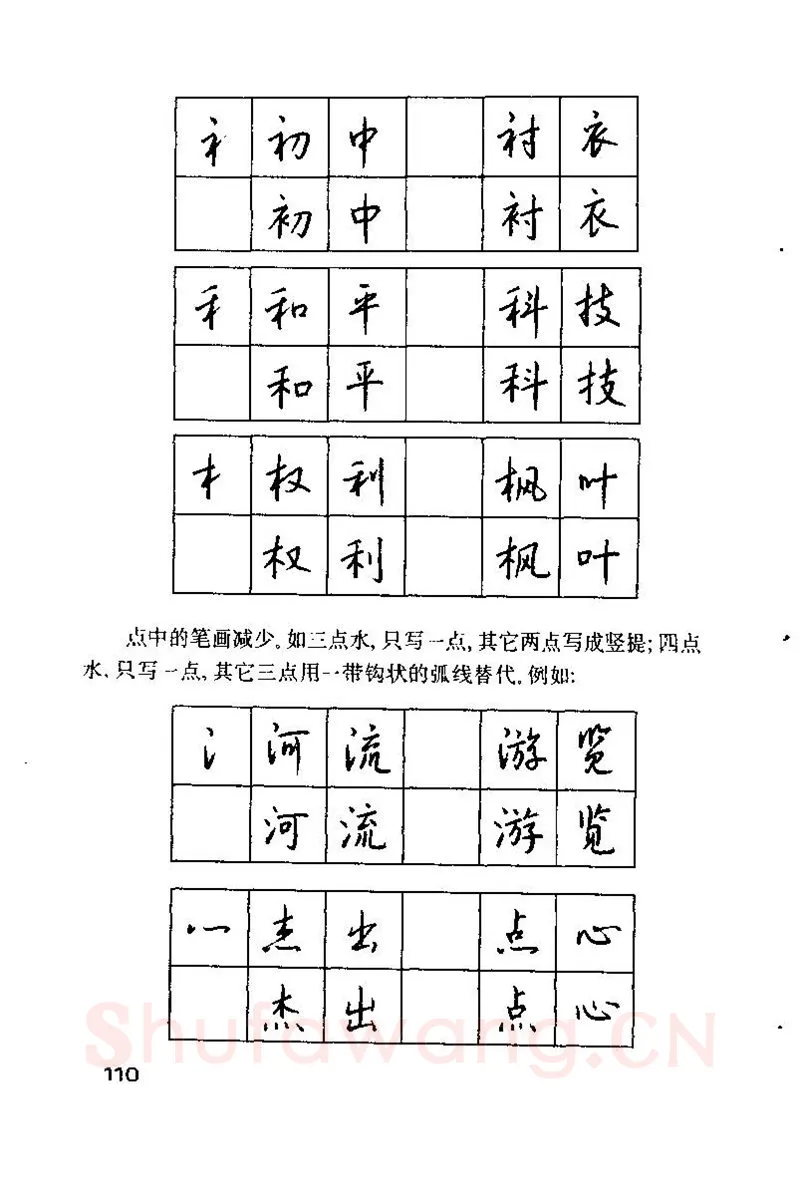 衤 初 中 衬 衣
初 中 衬 衣
禾 和 平 科 技
和 平 科 技
木 权 利 枫 叶
权 利 枫 叶
点中的笔画减少。如三点水,只写一点,其它两点写成竖提;四点
水,只写一点,其它三点用一带钩状的弧线替代。例如:
氵 河 流 游 览
河 流 游 览
灬 杰 出 点 心
杰 出 点 心
Shufawang.CN
110